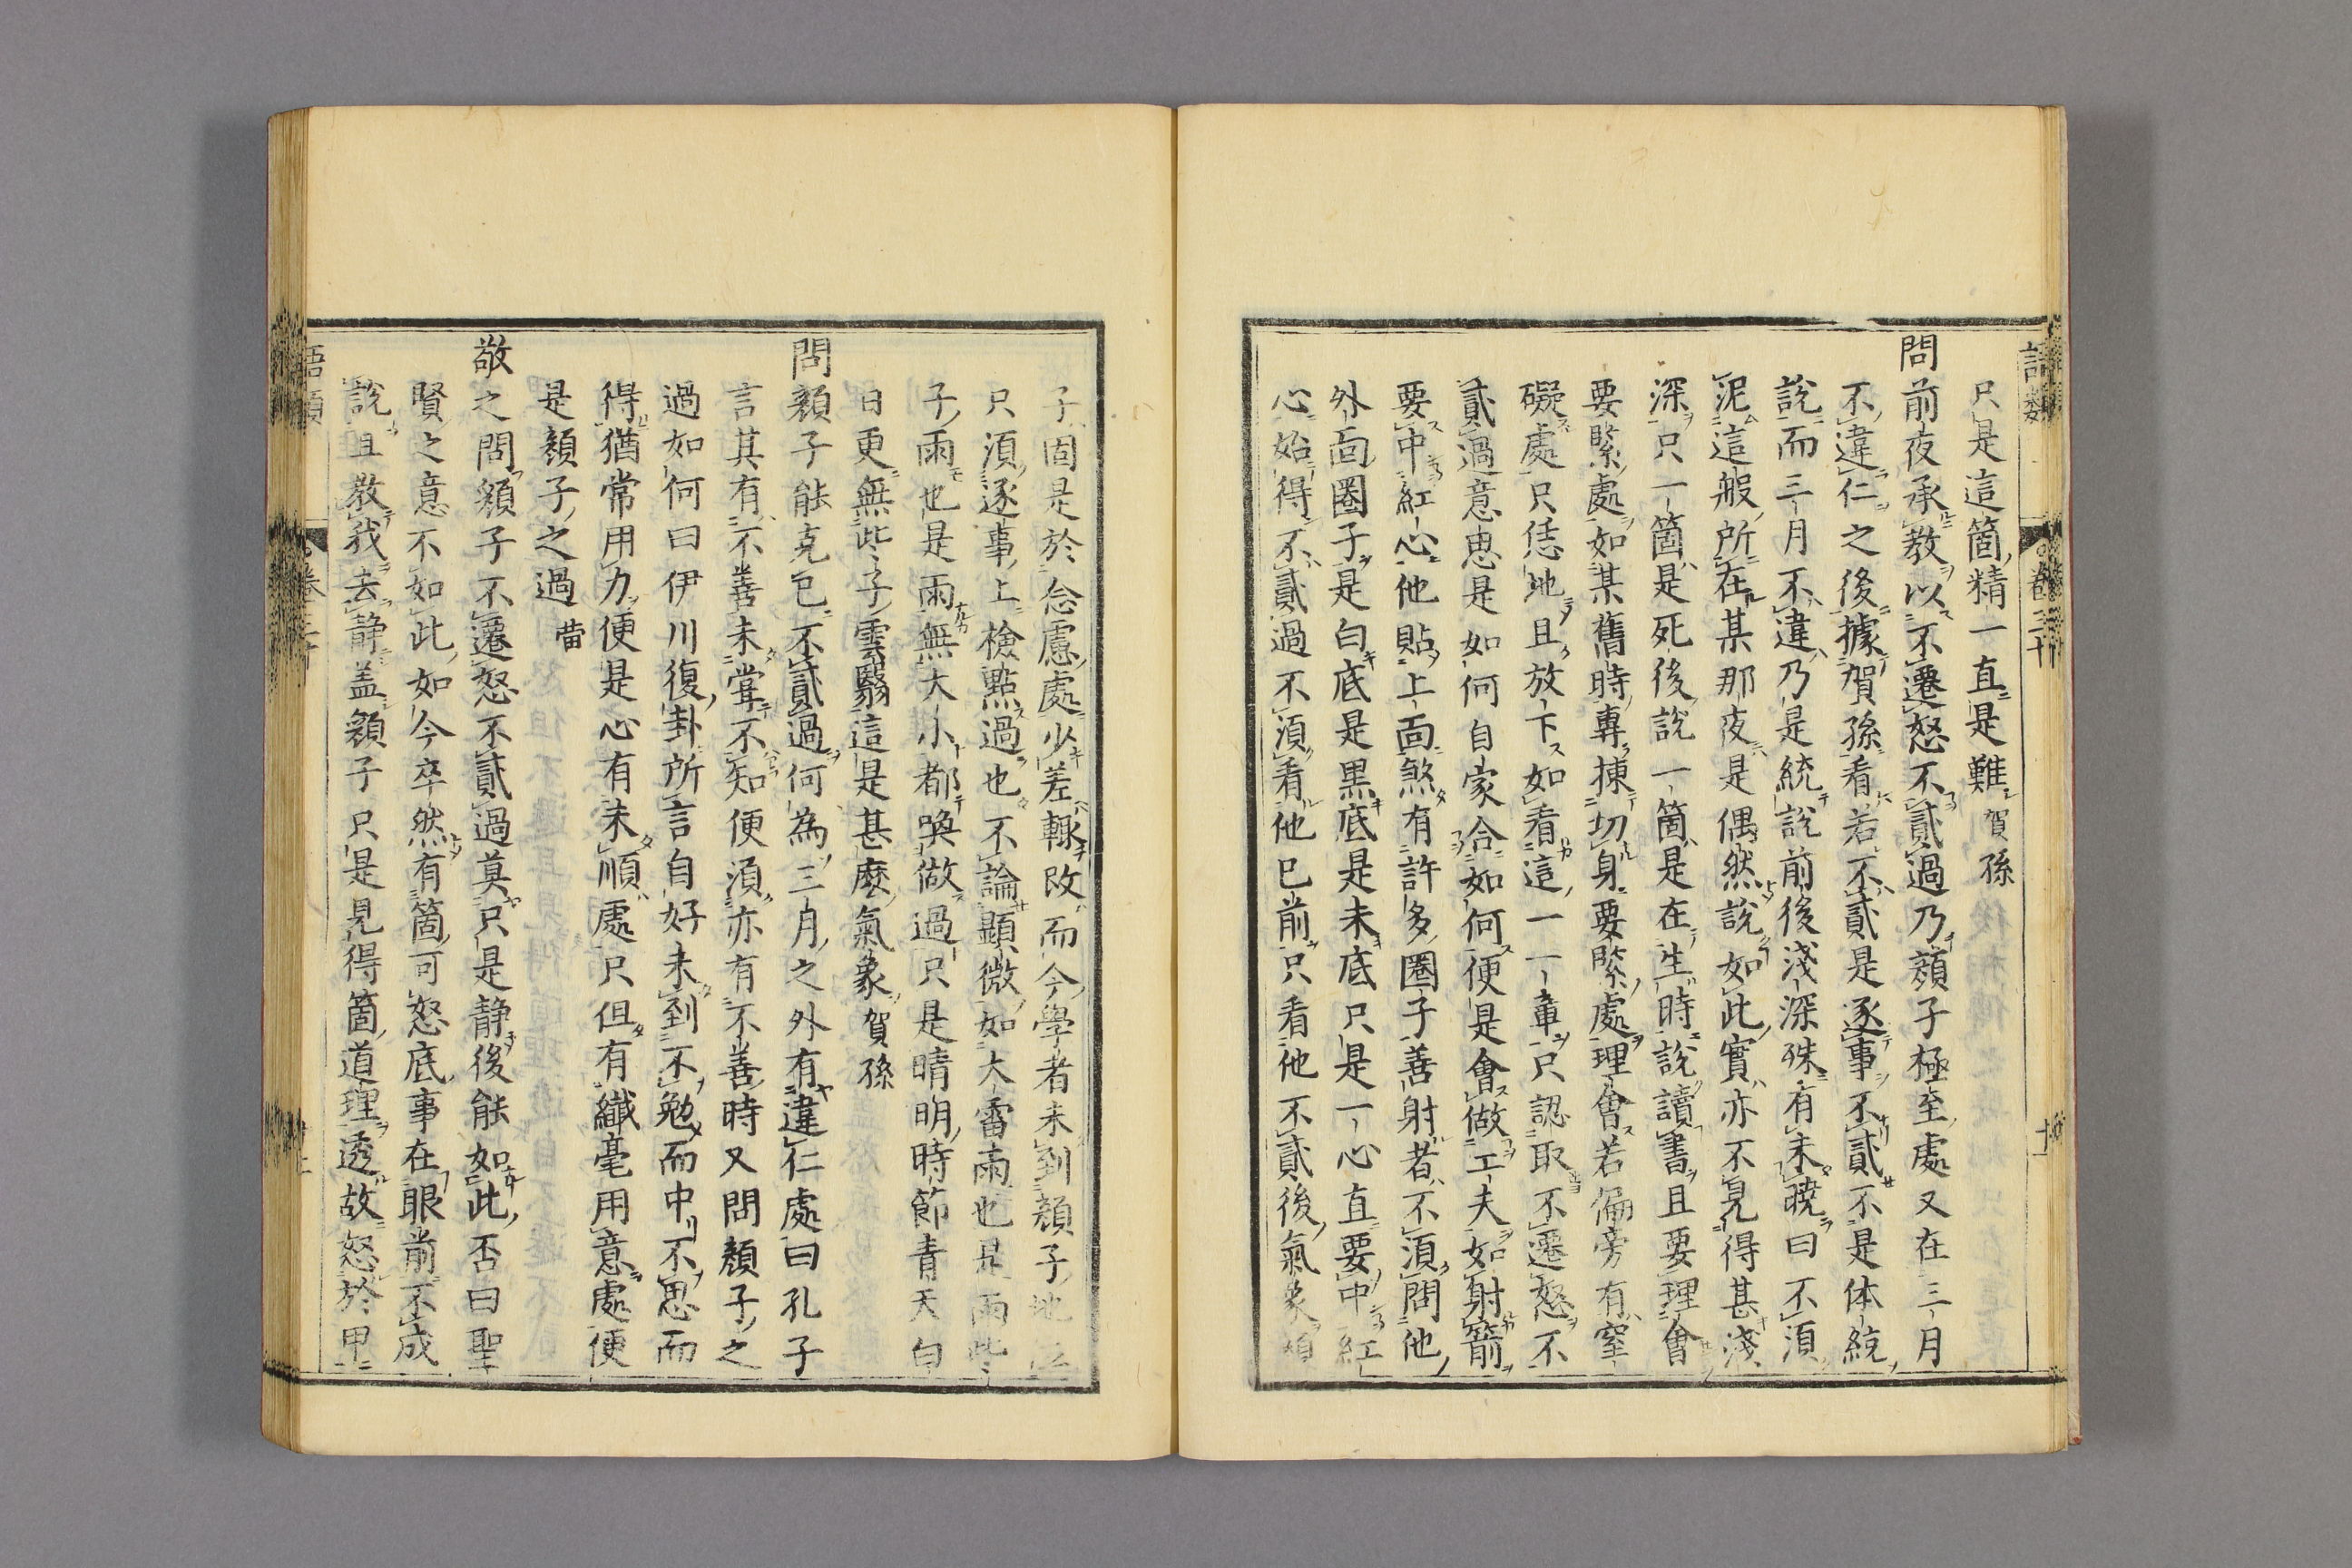 只是這箇精一直是難賀孫
問前夜承教以不遷怒不貳過乃顏子極至處又在三月
不違仁之後據賀孫看若不貳是逐事不貳不是体統
說而三月不違乃是統說前後淺深殊有未曉曰不須
泥這般所在某那夜是偶然說如此實亦不見得甚淺
深只一箇是死後說一箇是在生時說讀書且要理會
要緊處如某舊時專揀切身要緊處理會若偏旁有窒
礙處只恁地且放下如看這一一章只認取不遷怒不
貳過意思是如何自家合如何便是會做工夫如射箭
要中紅心他貼上面煞有許多圈子善射者不須問他
外面圈子是白底是黑底是朱底只是一心直要中紅
心始得不貳過不須看他已前只看他不貳後氣象顏
子固是於念慮處少差輙改而今學者未到顏子地
只須逐事上檢點過也不論顯微如大雷雨也是雨些
子雨也是雨無大小都喚做過只是晴明時節青天白
日更無些子雲翳這是甚麼氣象賀孫
問顏子能克己不貳過何為三月之外有違仁處曰孔子
言其有不善未嘗不知便須亦有不善時又問顏子之
過如何曰伊川復卦所言自好未到不勉而中不思而
得猶常用力便是心有未順處只但有纖毫用意處便
是顏子之過㽞
敬之問顏子不遷怒不貳過莫只是静後能如此否曰聖
賢之意不如此如今卒然有箇可怒底事在眼前不成
說且教我去静盖顏子只是見得箇道理透故怒於甲
語類
卷三十